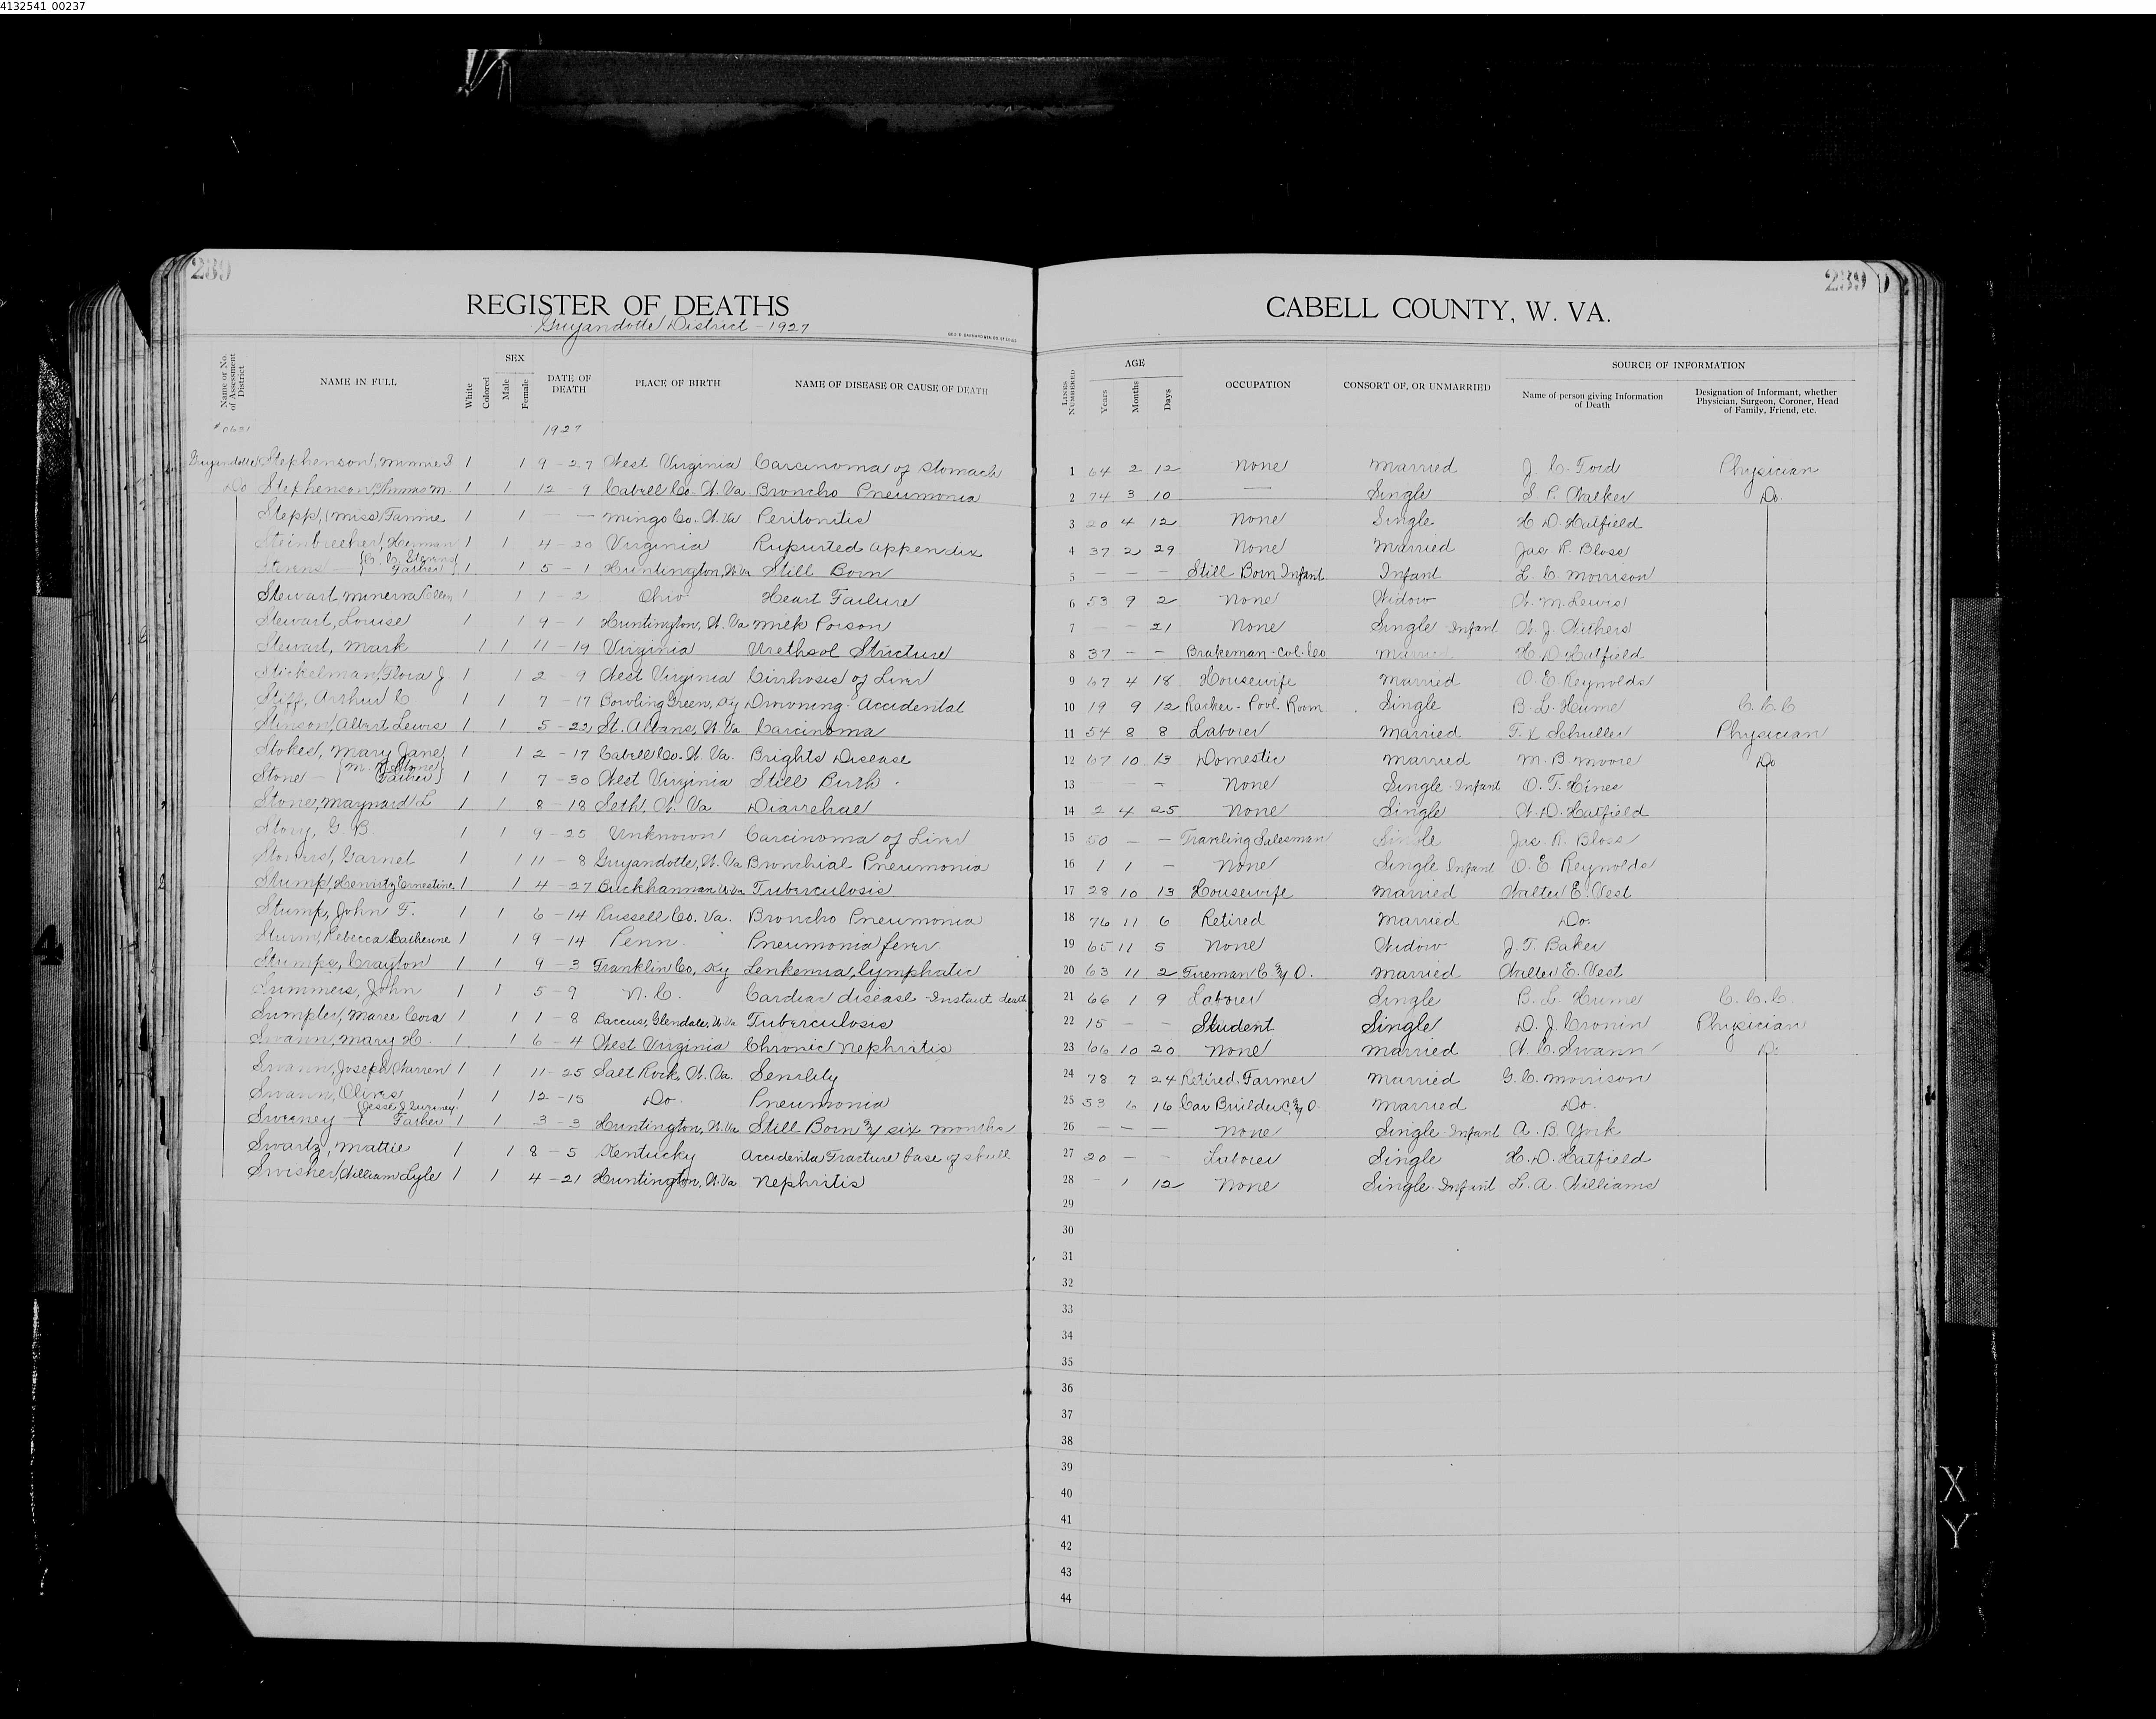 4132541_00237
239
239
REGISTER OF DEATHS
CABELL COUNTY, W. VA.
Guyandotte District - 1927
Name or No. of Assessment District
NAME IN FULL
White
Colored
SEX
Male
Female
DATE OF DEATH
PLACE OF BIRTH
NAME OF DISEASE OR CAUSE OF DEATH
LINES NUMBERED
AGE
Years
Months
Days
OCCUPATION
CONSORT OF, OR UNMARRIED
SOURCE OF INFORMATION
Name of person giving Information of Death
Designation of Informant, whether Physician, Surgeon, Coroner, Head of Family, Friend, etc.
1927
Guyandotte Stephenson, Minnie 1 1 9-27 West Virginia Carcinoma of Stomach 1 64 2 12 None Married J. C. Ford Physician
Do Stephenson, Thomas M. 1 1 12-9 Cabell Co. W. Va Broncho Pneumonia 2 74 3 10 — Single S. P. Walker Do.
Stepp, (Miss) Fannie 1 1 — — Mingo Co. W. Va Peritonitis 3 20 4 12 None Single H. D. Hatfield
Steinbrecher, Herman 1 1 4-20 Virginia Rupurted appendix 4 37 2 29 None Married Jas. R. Bloss
Stevens — { C. C. Stevens Father } 1 1 5-1 Huntington, W. Va Still Born 5 — — — Still Born Infant Infant L. C. Morrison
Stewart, Minerva Ellen 1 1 1-2 Ohio Heart Failure 6 53 9 2 None Widow W. M. Lewis
Stewart, Louise 1 1 9-1 Huntington, W. Va Milk Poison 7 — — 21 None Single Infant W. J. Withers
Stewart, Mark 1 1 11-19 Virginia Urethsol Stricture 8 37 — — Brakeman - Col. Co Married H. D. Hatfield
Stickelman, Flora J. 1 1 2-9 West Virginia Cirrhosis of Liver 9 67 4 18 Housewife Married O. E. Reynolds
Stiff, Arthur C 1 1 7-17 Bowling Green, Ky Drowning - Accidental 10 19 9 12 Racker - Pool Room Single B. L. Hume C. C. C
Stinson, Albert Lewis 1 1 5-22 St. Albans, W. Va Carcinoma 11 54 8 8 Laborer Married F. X. Schuller Physician
Stokes, Mary Jane 1 1 2-17 Cabell Co. W. Va. Brights Disease 12 67 10 13 Domestic Married M. B. Moore Do
Stone — { Stone Father } 1 1 7-30 West Virginia Still Birth 13 — — None Single Infant O. T. Hines
Stone, Maynard L 1 1 8-18 Seth, W. Va Diarrehae 14 2 4 25 None Single H. D. Hatfield
Story, G B 1 1 9-25 Unknown Carcinoma of Liver 15 50 — — Traveling Salesman Single Jas. R. Bloss
Stowers, Garnet 1 1 11-8 Guyandotte, W. Va Bronchial Pneumonia 16 1 1 — None Single Infant O. E Reynolds
Stump, Ernestine 1 1 4-27 Buckhannan W Va Tuberculosis 17 28 10 13 Housewife Married Walter E. Vest
Stump, John F. 1 1 6-14 Russell Co. Va. Broncho Pneumonia 18 76 11 6 Retired Married Do.
Sturm, Rebecca Catherine 1 1 9-14 Penn. Pneumonia fever 19 65 11 5 None Widow J. T. Baker
Stumps, Crayton 1 1 9-3 Franklin Co, Ky Lenkemia, lymphatic 20 63 11 2 Fireman C. & O. Married Walter E. Vest
Summers, John 1 1 5-9 N. C. Cardiac disease - Instant death 21 66 1 9 Laborer Single B. L. Hume C. C. C.
Sumpter, Maree Cora 1 1 1-8 Baccus, Glendale, W. Va Tuberculosis 22 15 — — Student Single D. J. Cronin Physician
Swann, Mary H. 1 1 6-4 West Virginia Chronic Nephritis 23 66 10 20 None Married W. C. Swann Do
Swann, Joseph Warren 1 1 11-25 Salt Rock, W. Va. Senility 24 78 7 24 Retired Farmer Married G. C. Morrison
Swann, Oliver 1 1 12-15 Do. Pneumonia 25 53 6 16 Car Builder C. & O. Married Do.
Sweeney — { Jesse J Sweeney Father 1 1 3-3 Huntington, W. Va Still Born & six months 26 — — — None Single Infant A. B. York
Swartz, Mattie 1 1 8-5 Kentucky Accidental Fracture base of skull 27 20 — — Laborer Single H. D. Hatfield
Swisher, William Lyle 1 1 4-21 Huntington, W. Va Nephritis 28 — 1 12 None Single Infant L. A. Williams
29
30
31
32
33
34
35
36
37
38
39
40
41
42
43
44
4
4
X
Y